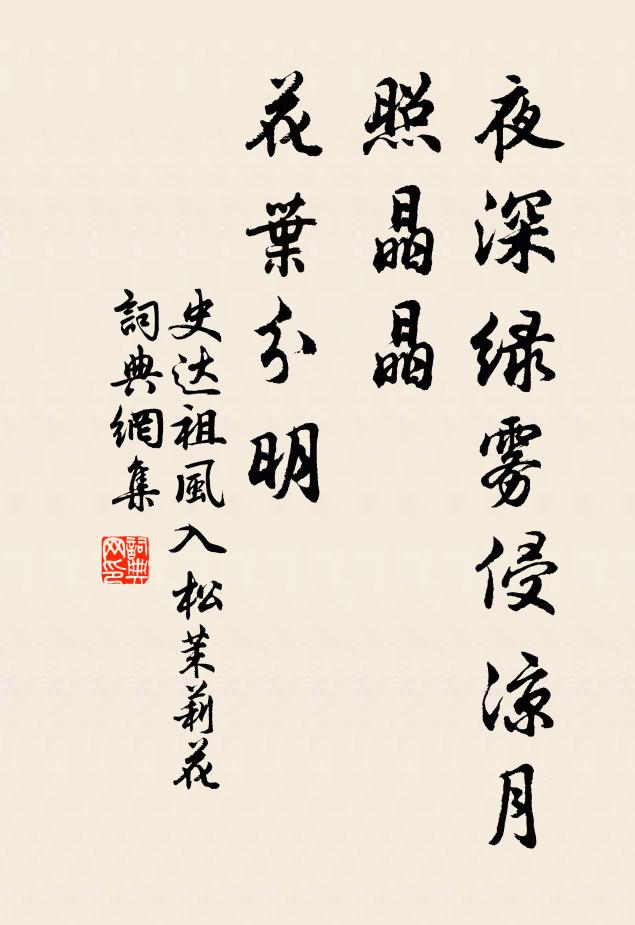 夜深绿雾侵凉月
照晶晶
花葉分明
史达祖風入松茉莉花
詞典網集
詞典
网印